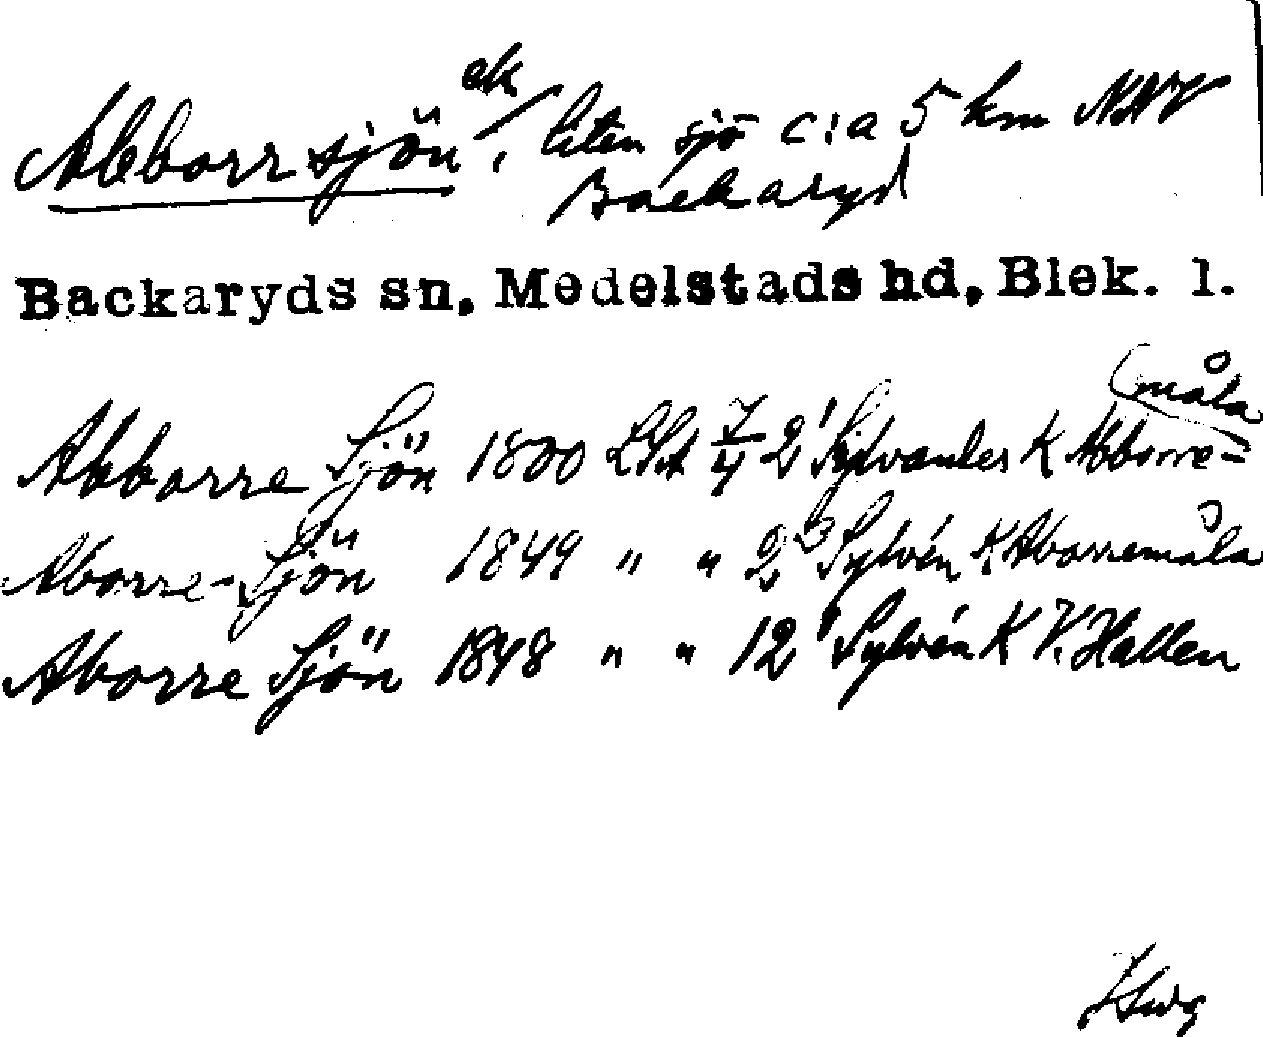 Abborrsjön ek/, liten sjö c:a 5 km NNV
Backaryd
Backaryds sn, Medelstads hd, Blek. l.
Abborre Sjön 1800 LSA 7/4 2' Sylvander K Abborre=
(måla
Aborre-Sjön 1849 " " 2³ Sylvén K Aborremåla
Aborre Sjön 1848 " " 12' Sylvén K V. Hallen